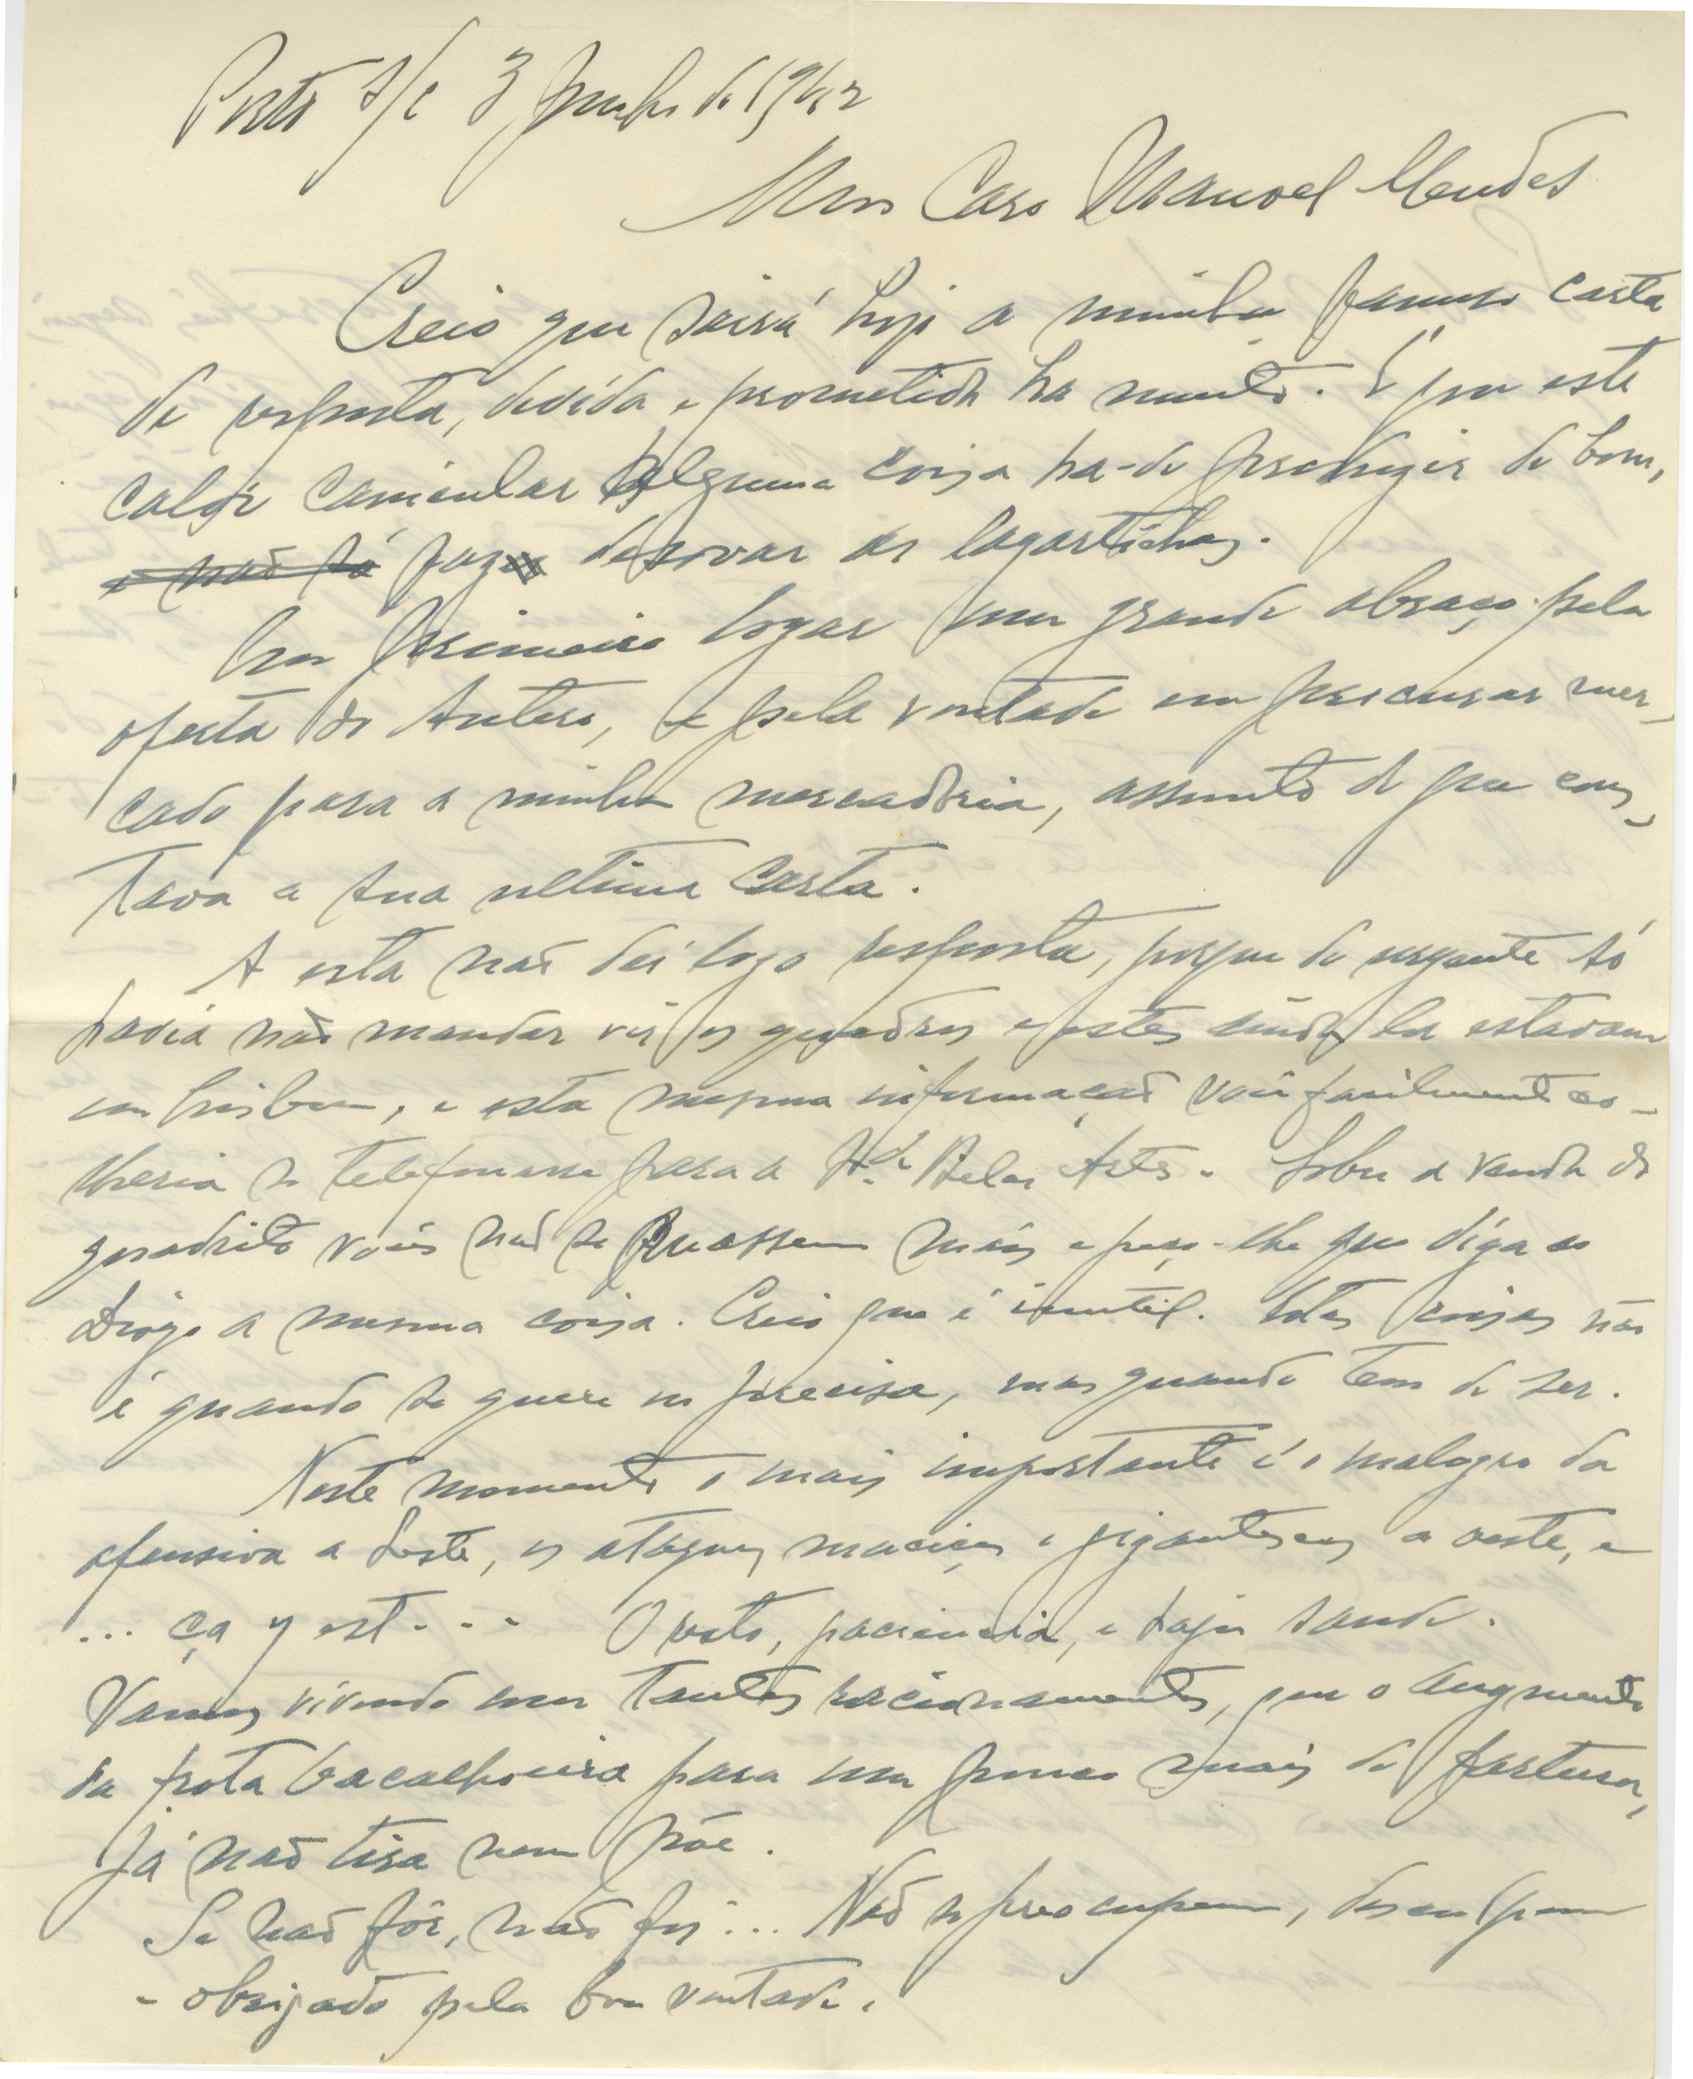 Porto s/c 3 Junho de 1942
Meu Caro Manoel Mendes
Creio que sairá hoje a minha famosa carta
de resposta, devida e prometida ha muito. É que este
calor canicular alguma coisa ha-de produzir de bom,
e não só fazer desovar as lagartichas.
Em primeiro logar um grande abraço pela
oferta do Antero, e pela vontade em procurar mer-
cado para a minha mercadoria, assunto de que cons-
tava a sua ultima carta.
A esta não dei logo resposta, porque de urgente só
havia não mandar vir os quadros e estes ainda la estavam
em Lisboa, e esta mesma informação você facilmente co-
lheria se telefonasse para a Sde Belas Artes. Sobre a venda do
quadrito vocês não se massem mais e peço-lhe que diga ao
Diogo a mesma coisa. Creio que é inutil. Estas coisas não
é quando se quere ou precisa, mas quando tem de ser.
Neste momento o mais importante é o malogro da
ofensiva a Leste, os ataques maciços e gigantescos a oeste, e
... ça y est... O resto, paciencia, e haja saude.
Vamos vivendo com tantos racionamentos, que o augmento
da frota bacalhoeira para um pouco mais de fartura,
já não tira nem põe.
Se não fôr, não foi... Não se preocupem, desculpem
e obrigado pela boa vontade.